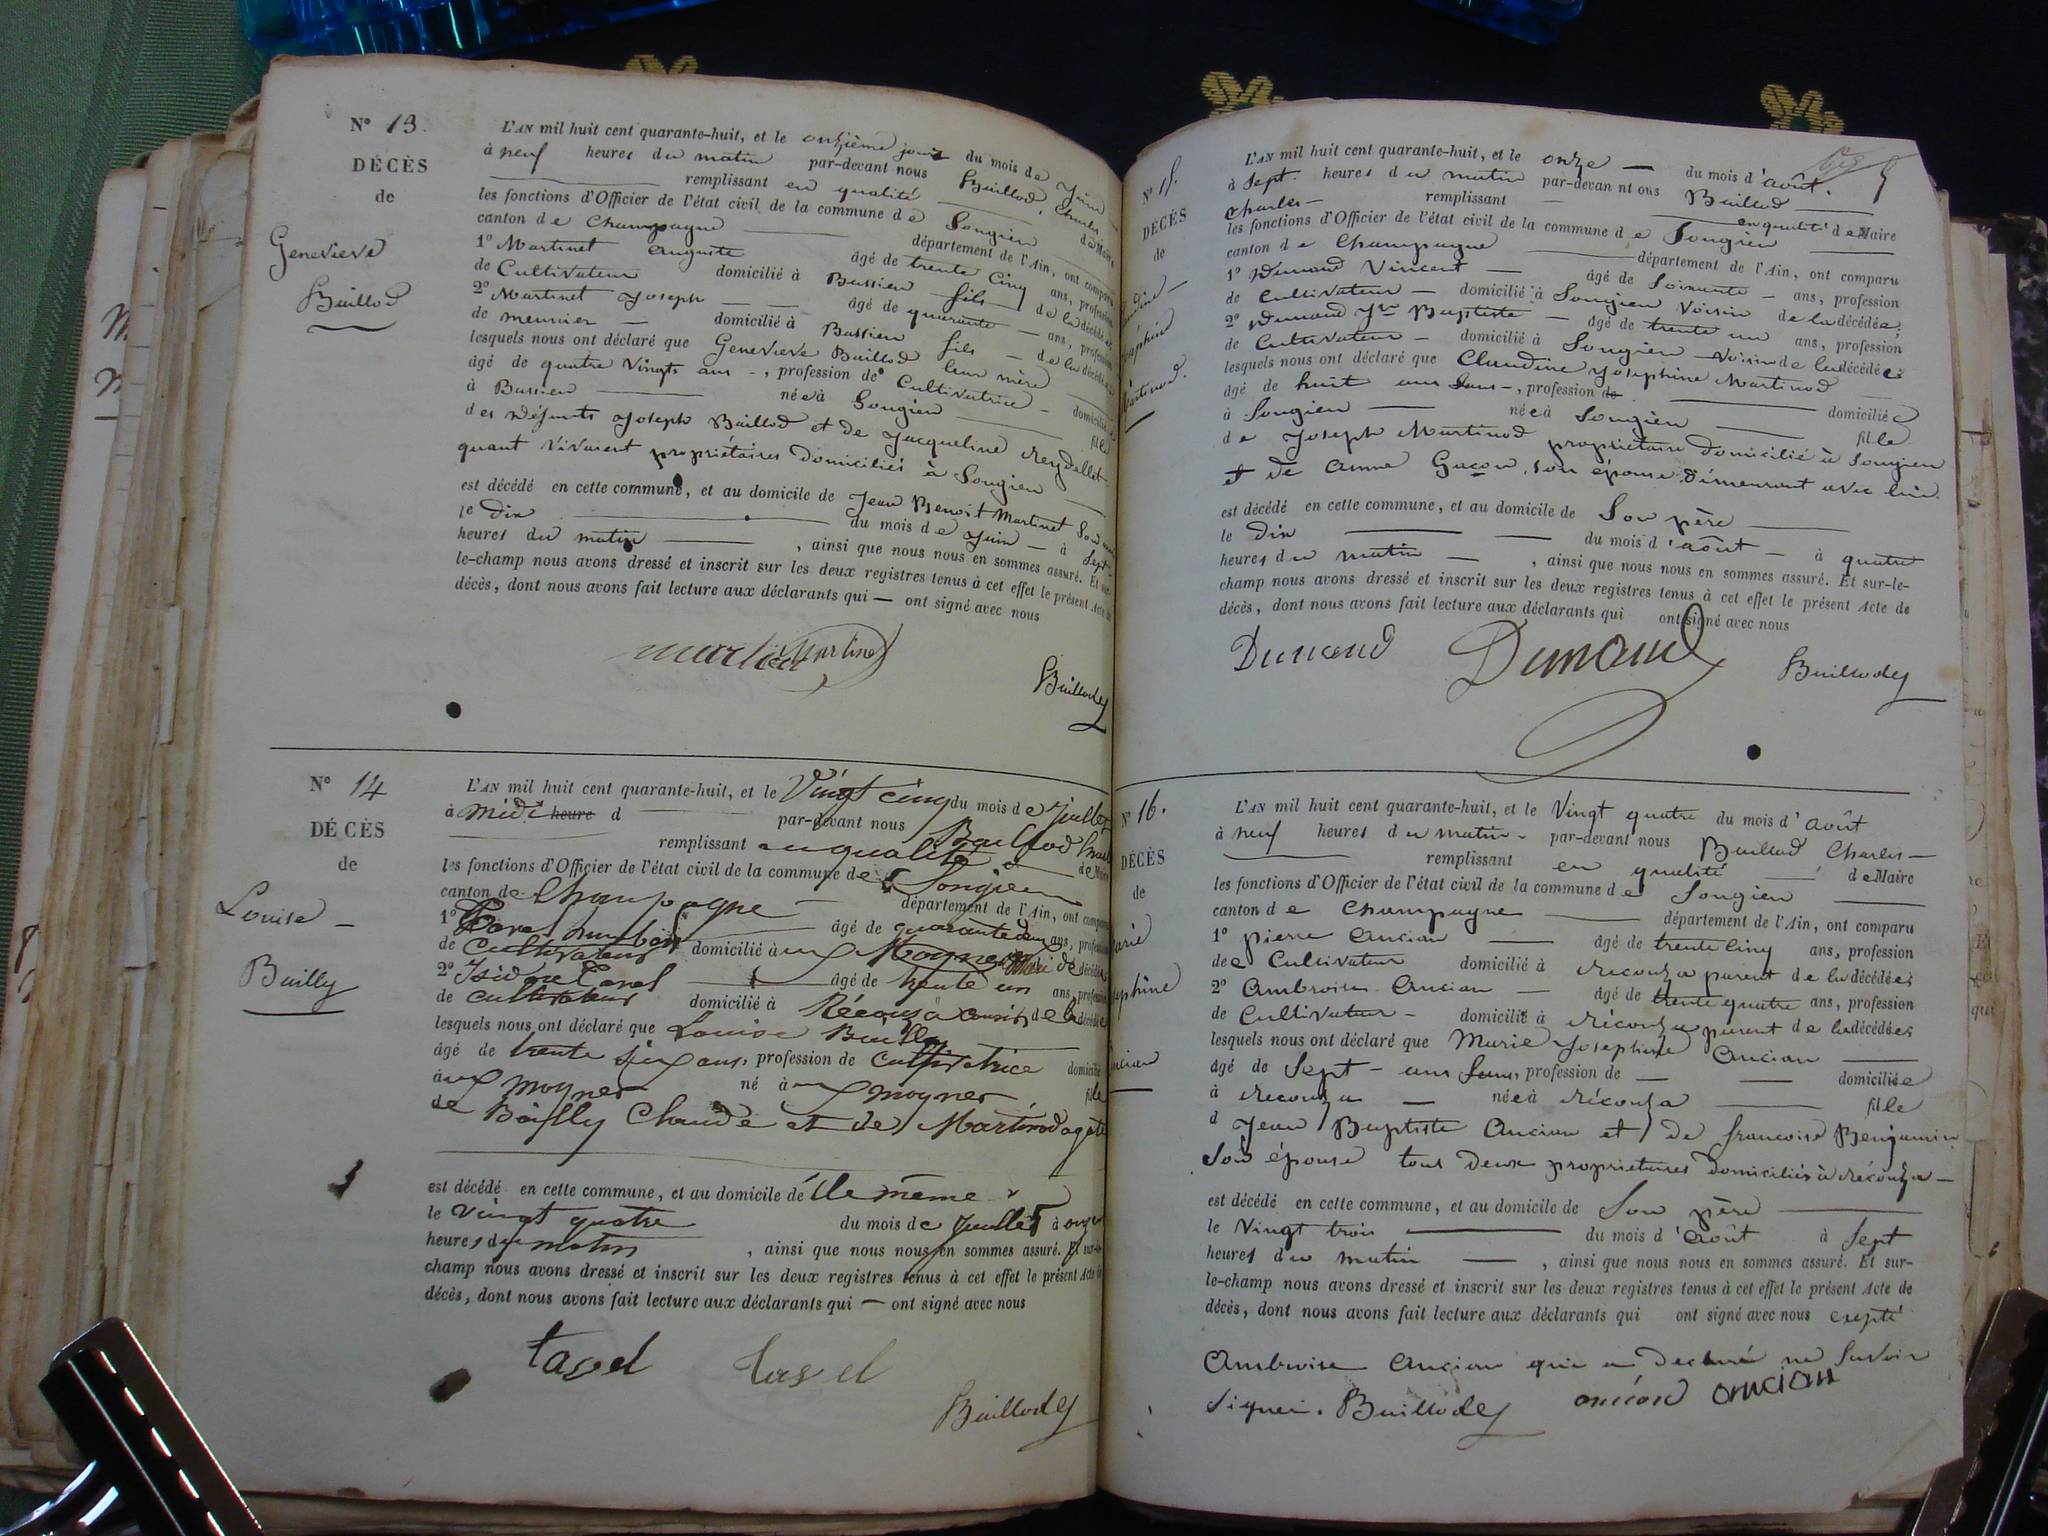 N° 13.
DÉCÈS
de
Genevieve
Baillod
L'AN mil huit cent quarante-huit, et le onzième jour du mois de Juin
à neuf heures du matin par-devant nous Baillod, Charles
remplissant en qualité de Maire
les fonctions d'Officier de l'état civil de la commune de Songieu
canton de Champagne département de l'Ain, ont comparu
1° Martinet auguste âgé de trente Cinq ans, profession
de Cultivateur domicilié à Bassieu fils de la décédée
2° Martinet Joseph âgé de quarante ans, profession
de meunier domicilié à Bassieu fils de la décédée
lesquels nous ont déclaré que Genevieve Baillod leur mère
âgé de quatre Vingts ans, profession de Cultivatrice domiciliée
à Bassieu née à Songieu fille
des défunts Joseph Baillod et de Jacqueline Reydellet
quant Vivaient propriétaires domiciliés à Songieu
est décédé en cette commune, et au domicile de Jean Benoit Martinet Son
le dix du mois de Juin à Sept
heures du matin, ainsi que nous nous en sommes assuré. Et sur-
le-champ nous avons dressé et inscrit sur les deux registres tenus à cet effet le présent Acte de
décès, dont nous avons fait lecture aux déclarants qui ont signé avec nous
Martinet Baillod
N° 14
DÉCÈS
de
Louise
Bailly
L'AN mil huit cent quarante-huit, et le Vingt cinq du mois de Juillet
à midi heure d par-devant nous Baillod
remplissant en qualité de Maire
les fonctions d'Officier de l'état civil de la commune de Songieu
canton de Champagne département de l'Ain, ont comparu
1° âgé de quarante deux ans, profession
de Cultivateur domicilié à décédée
2° Isidore Tavel âgé de trente un ans, profession
de cultivateur domicilié à Récouza cousin de la décédée
lesquels nous ont déclaré que Louise Bailly
âgé de trente six ans, profession de cultivatrice domicilié
à moyner né à moyner fille
de Bailly Claude et de Martinod agate
est décédé en cette commune, et au domicile de elle même
le vingt quatre du mois de Juillet à onze
heures du matin, ainsi que nous nous en sommes assuré. Et sur-le-
champ nous avons dressé et inscrit sur les deux registres tenus à cet effet le présent Acte de
décès, dont nous avons fait lecture aux déclarants qui — ont signé avec nous
tavel tavel
Baillod
N° 15.
DÉCÈS
de
L'AN mil huit cent quarante-huit, et le onze du mois d'août.
à Sept heures du matin par-devan nt ous Baillod
Charles remplissant en qualité de Maire
les fonctions d'Officier de l'état civil de la commune de Songieu
canton de Champagne département de l'Ain, ont comparu
1° Dunand Vincent âgé de Soixante ans, profession
de Cultivateur domicilié à Songieu Voisin de la décédée;
2° Dunand Jn Baptiste âgé de trente un ans, profession
de Cultivateur domicilié à Songieu Voisin de la décédée
lesquels nous ont déclaré que Claudine Josephine Martinod
âgé de huit ans Sans, profession de domiciliée
à Songieu née à Songieu fille
de Joseph Martinod propriétaire domicilié à Songieu
et de anne Gacon, son épouse, démeurant avec lui.
est décédé en cette commune, et au domicile de Son père
le dix du mois d'août à quatre
heures du matin, ainsi que nous nous en sommes assuré. Et sur-le-
champ nous avons dressé et inscrit sur les deux registres tenus à cet effet le présent Acte de
décès, dont nous avons fait lecture aux déclarants qui ont signé avec nous
Dunand Dunand Baillod
N° 16.
DÉCÈS
de
L'AN mil huit cent quarante-huit, et le Vingt quatre du mois d'août
à neuf heures du matin par-devant nous Baillod Charles
remplissant en qualité de Maire
les fonctions d'Officier de l'état civil de la commune de Songieu
canton de Champagne département de l'Ain, ont comparu
1° pierre Ancian âgé de trente Cinq ans, profession
de Cultivateur domicilié à récouza parent de la décédée;
2° Ambroise Ancian âgé de trente quatre ans, profession
de Cultivateur domicilié à récouza parent de la décédée;
lesquels nous ont déclaré que Marie Josephine Ancian
âgé de Sept ans Sans, profession de domiciliée
à récouza née à récouza fille
d Jean Baptiste Ancian et de francoise Benjamin
Son épouse tous deux proprietaires domiciliés à récouza
est décédé en cette commune, et au domicile de Son père
le Vingt trois du mois d'août à Sept
heures du matin, ainsi que nous nous en sommes assuré. Et sur-
le-champ nous avons dressé et inscrit sur les deux registres tenus à cet effet le présent Acte de
décès, dont nous avons fait lecture aux déclarants qui ont signé avec nous exepté
Ambroise Ancian qui a Declaré ne Savoir
Signer. Baillod ancian